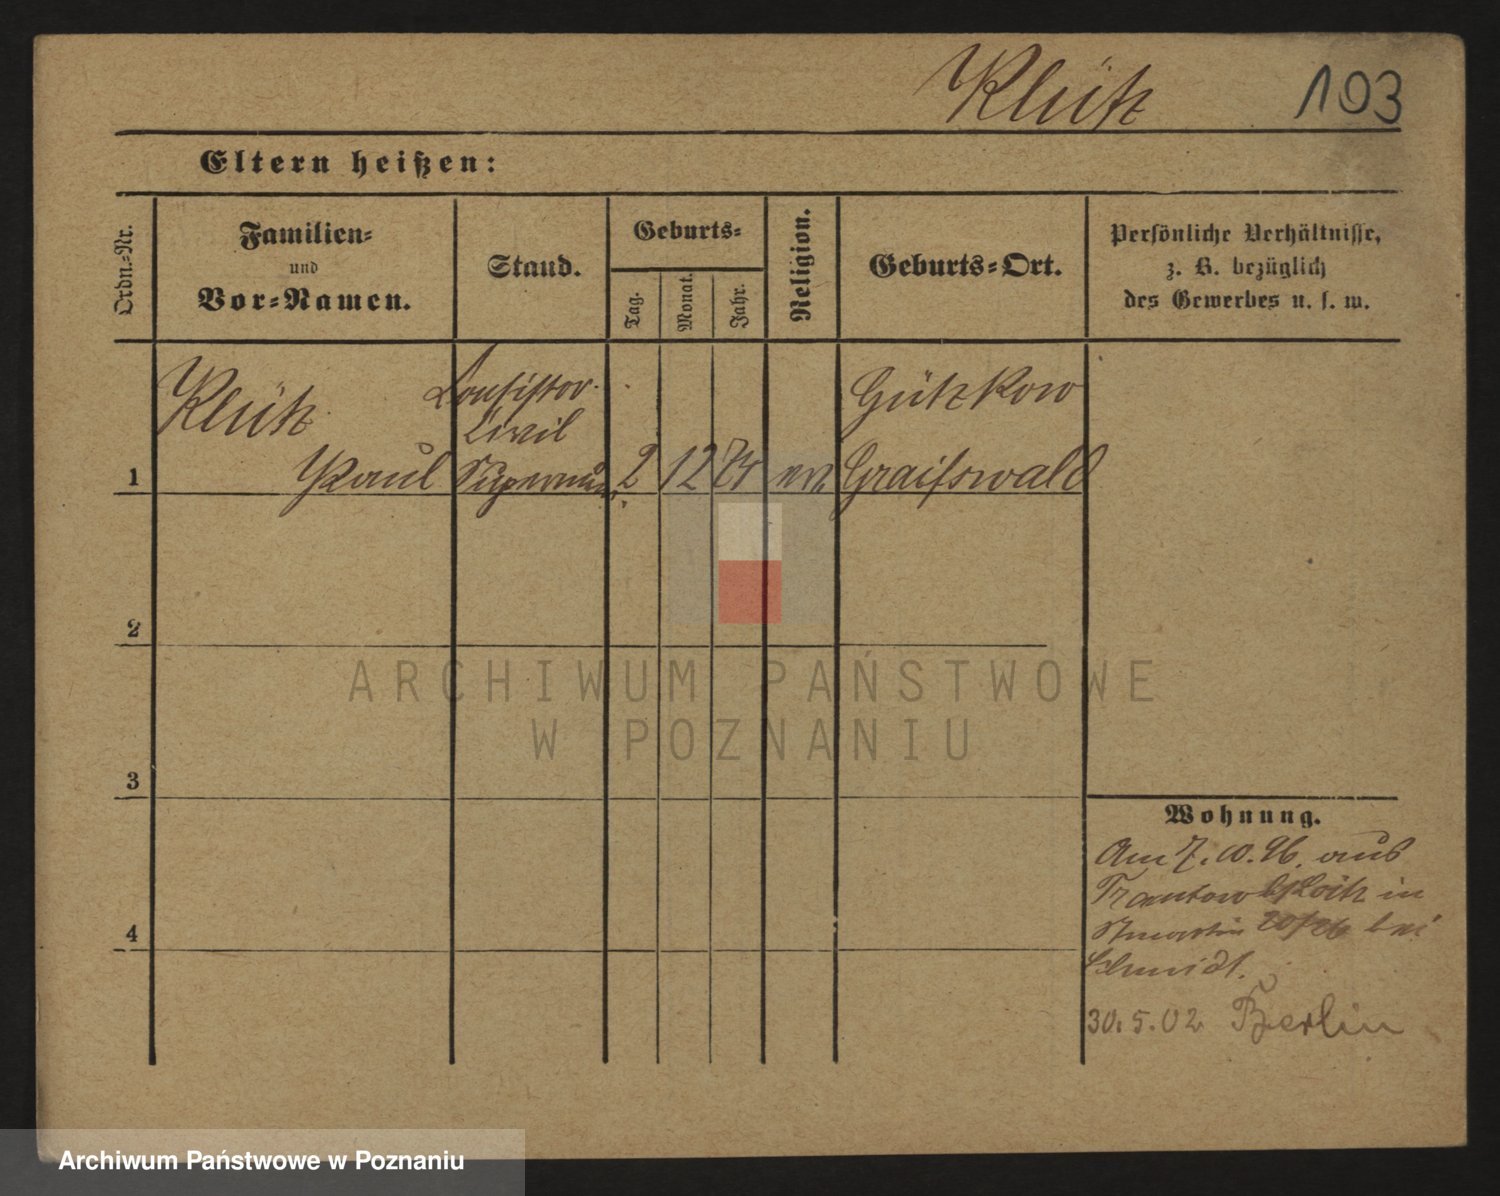 Klütz 103
Eltern heißen:
Ordn.-Nr.
Familien-
und
Vor-Namen.
Stand.
Geburts-
Tag.
Monat.
Jahr.
Religion.
Geburts-Ort.
Persönliche Verhältnisse,
z. B. bezüglich
des Gewerbes u. s. w.
1
Klütz
Paul
Consistor.
Civil
Supernum.
2 12
ev.
Gützkow
Greifswald
2
3
4
Wohnung.
Am 7.10.96. aus
Trantow b/Loitz in
St martin bei
Schmidt.
30.5.02 Berlin
ARCHIWUM PAŃSTWOWE
W POZNANIU
Archiwum Państwowe w Poznaniu